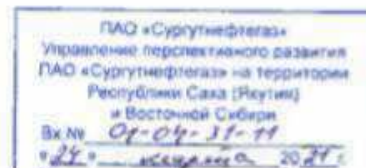 ПАО «Сургутнефтегаз»
Управление перспективного развития
ПАО «Сургутнефтегаз» на территории
Республики Саха (Якутия)
и Восточной Сибири
Вх № 01-04-31-11
«24» марта 2021 г.